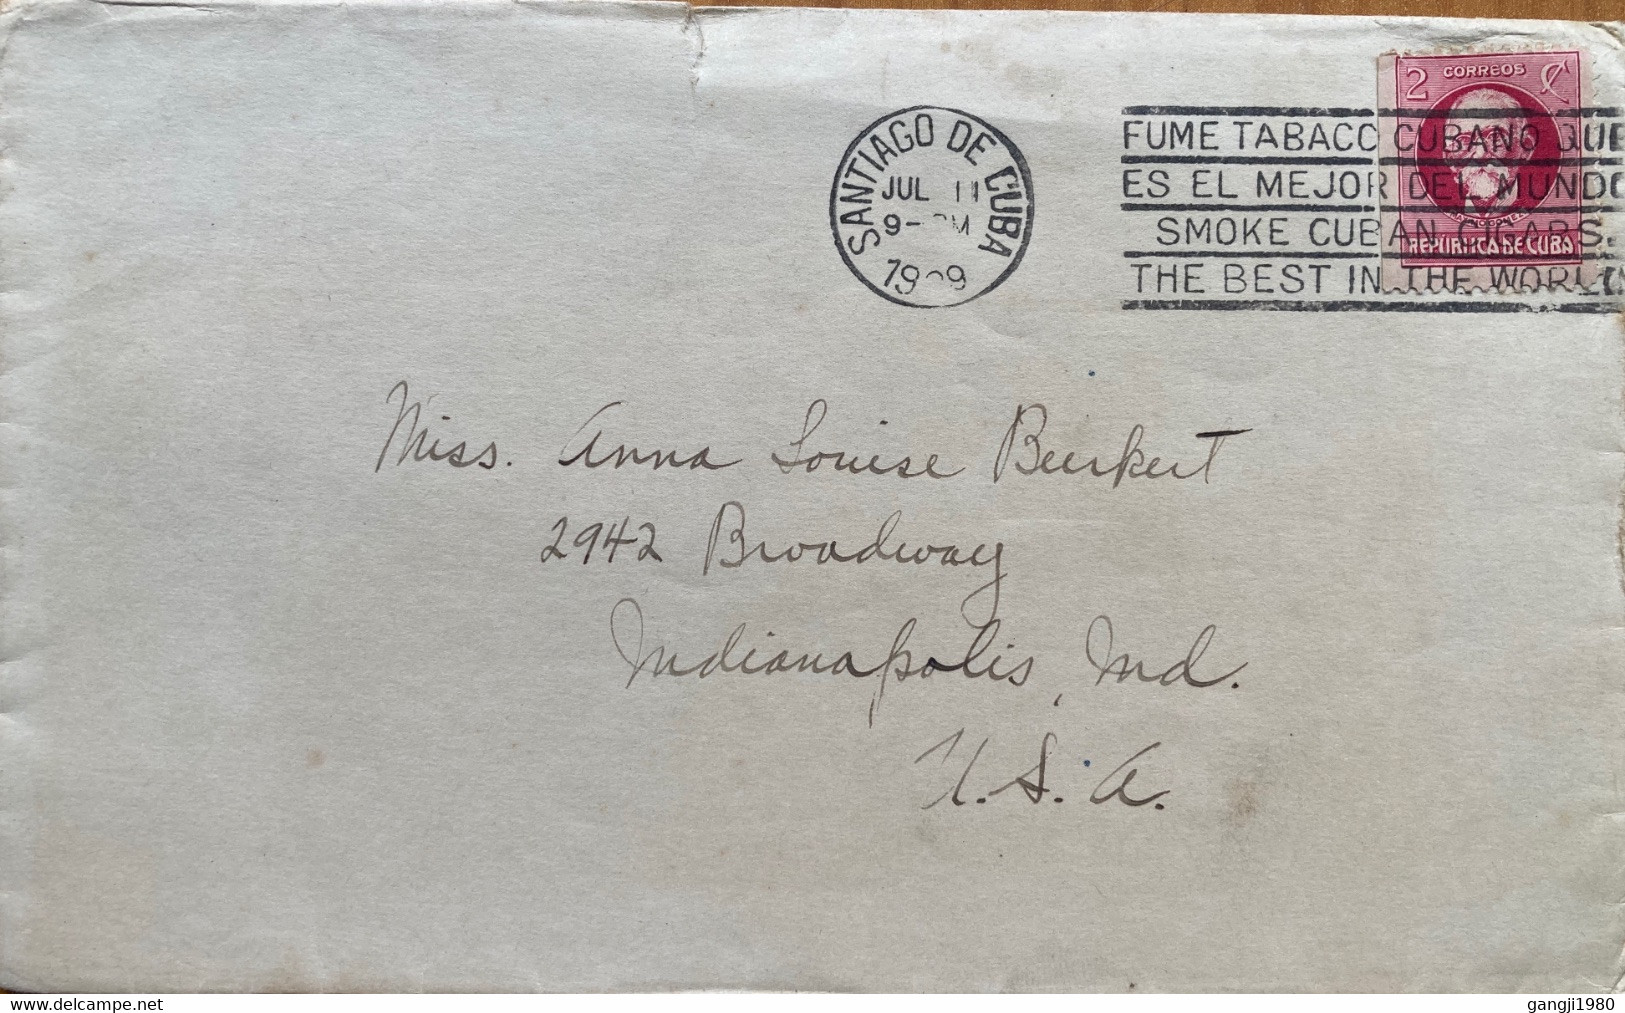 2 CORREOS ¢
SANTIAGO DE CUBA
JUL 11
9- PM
FUME TABACO CUBANO QUE
ES EL MEJOR DEL MUNDO
SMOKE CUBAN CIGARS.
THE BEST IN THE WORL
REPUBLICA DE CUBA
Miss. Anna Louise Beurkert
2942 Broadway
Indianapolis, Ind.
U.S.A.
delcampe.net
gangji1980